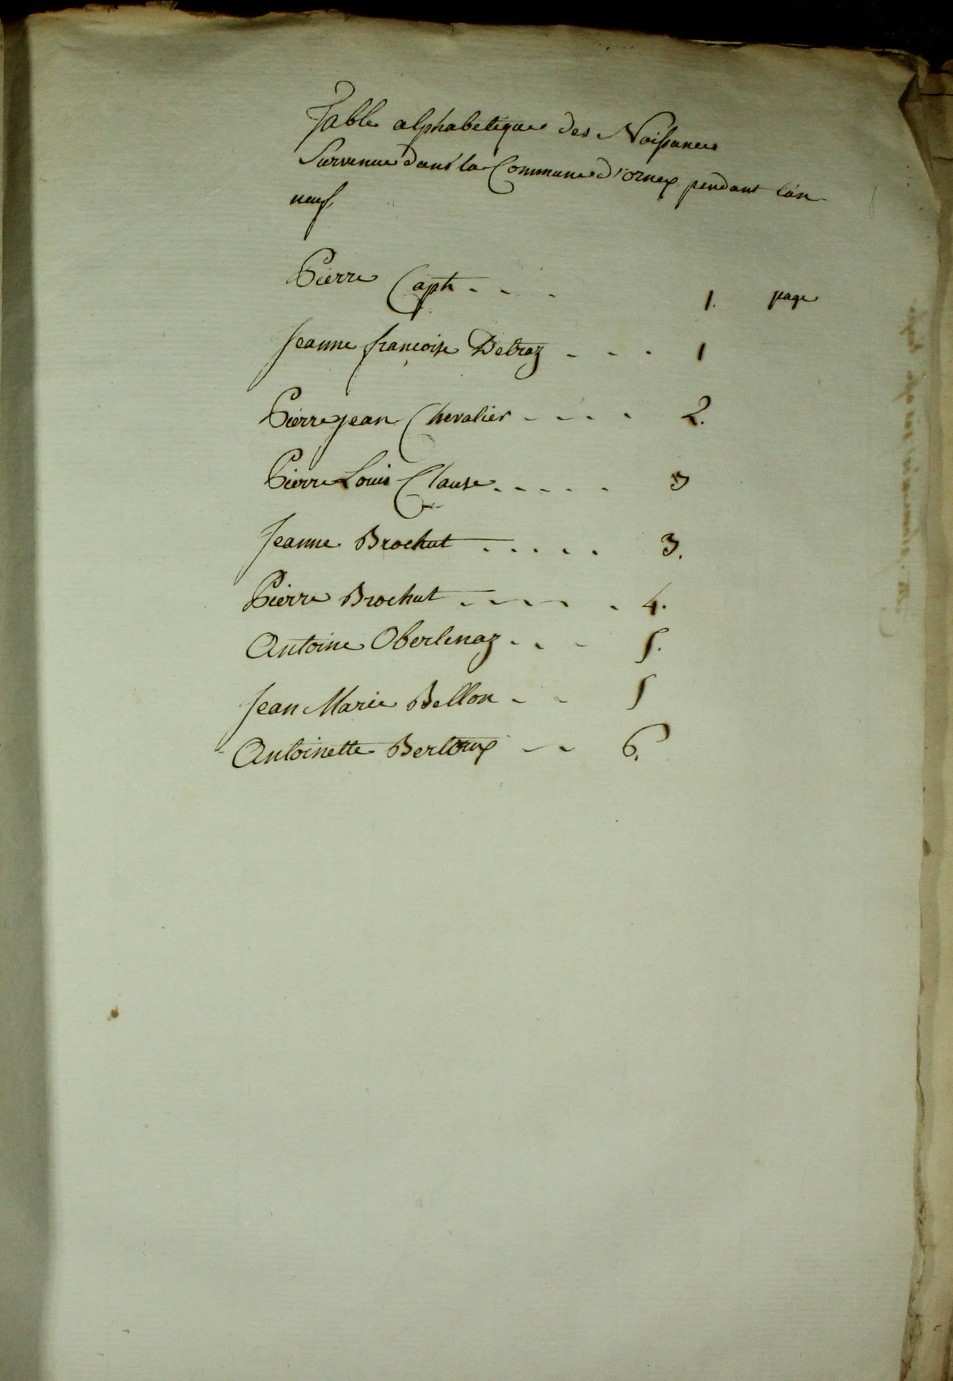 Table alphabetique des Naissances
Survenue dans la Commune d'ornex pendant l'an
neuf.
Pierre Capt - - - 1. page
Jeanne françoise Detraz - - - 1
Pierre jean Chevalier - - - - 2.
Pierre Louis Clause - - - - - 3
Jeanne Brochut - - - - - 3.
Pierre Brochut - - - - - 4.
Antoine Oberlenaz - - - 5.
Jean Marie Bellon - - 5
Antoinette Bertoux - - 6.